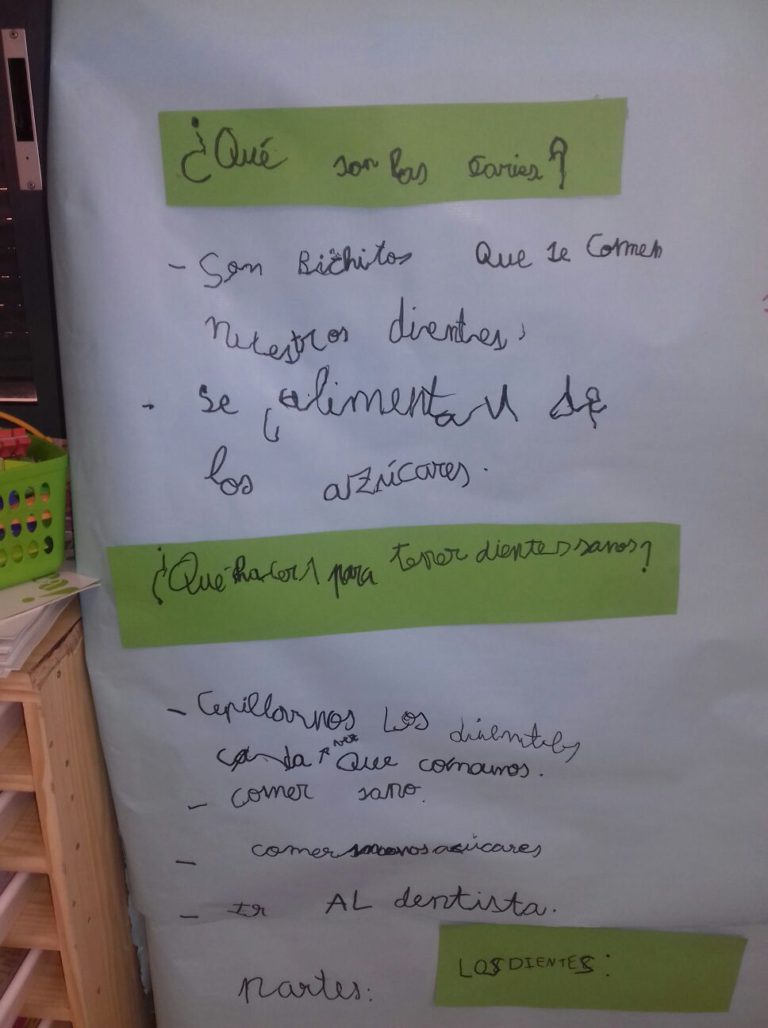 ¿Qué son las caries?
- Son Bichitos Que se Comen
nuestros dientes,
- se alimentan de
los azúcares.
¿Qué hacer para tener dientes sanos?
- Cepillarnos los dienetes
cada vez que comamos.
- comer sano.
- comer menos azúcares
- Ir AL dentista.
LOS DIENTES:
partes: